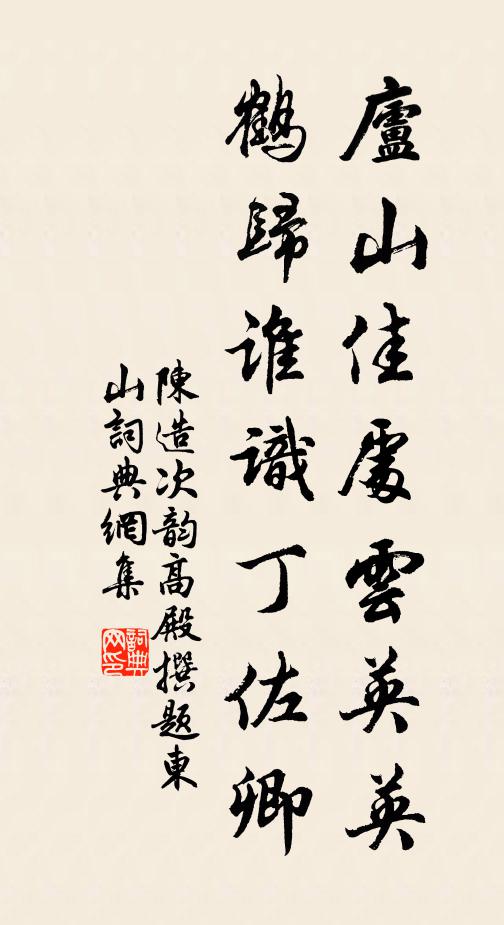 廬山佳處雲英英
鶴歸誰識丁佐卿
陳造次韵高殿撰題東
山詞典網集
詞典
网印